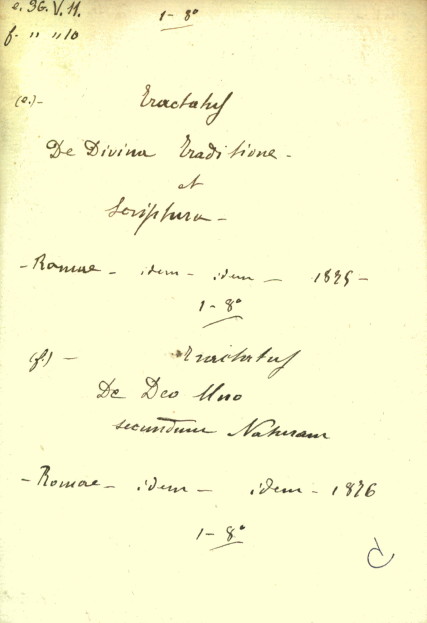 e. 36. V. 11.
f. " " 10
1 - 8°
(e.) -
Tractatus
De Divina Traditione -
et
Scriptura -
- Romae - idem - idem - 1875 -
1 - 8°
(f.) - Tractatus
De Deo Uno
secundum Naturam
- Romae - idem - idem - 1876
1 - 8°